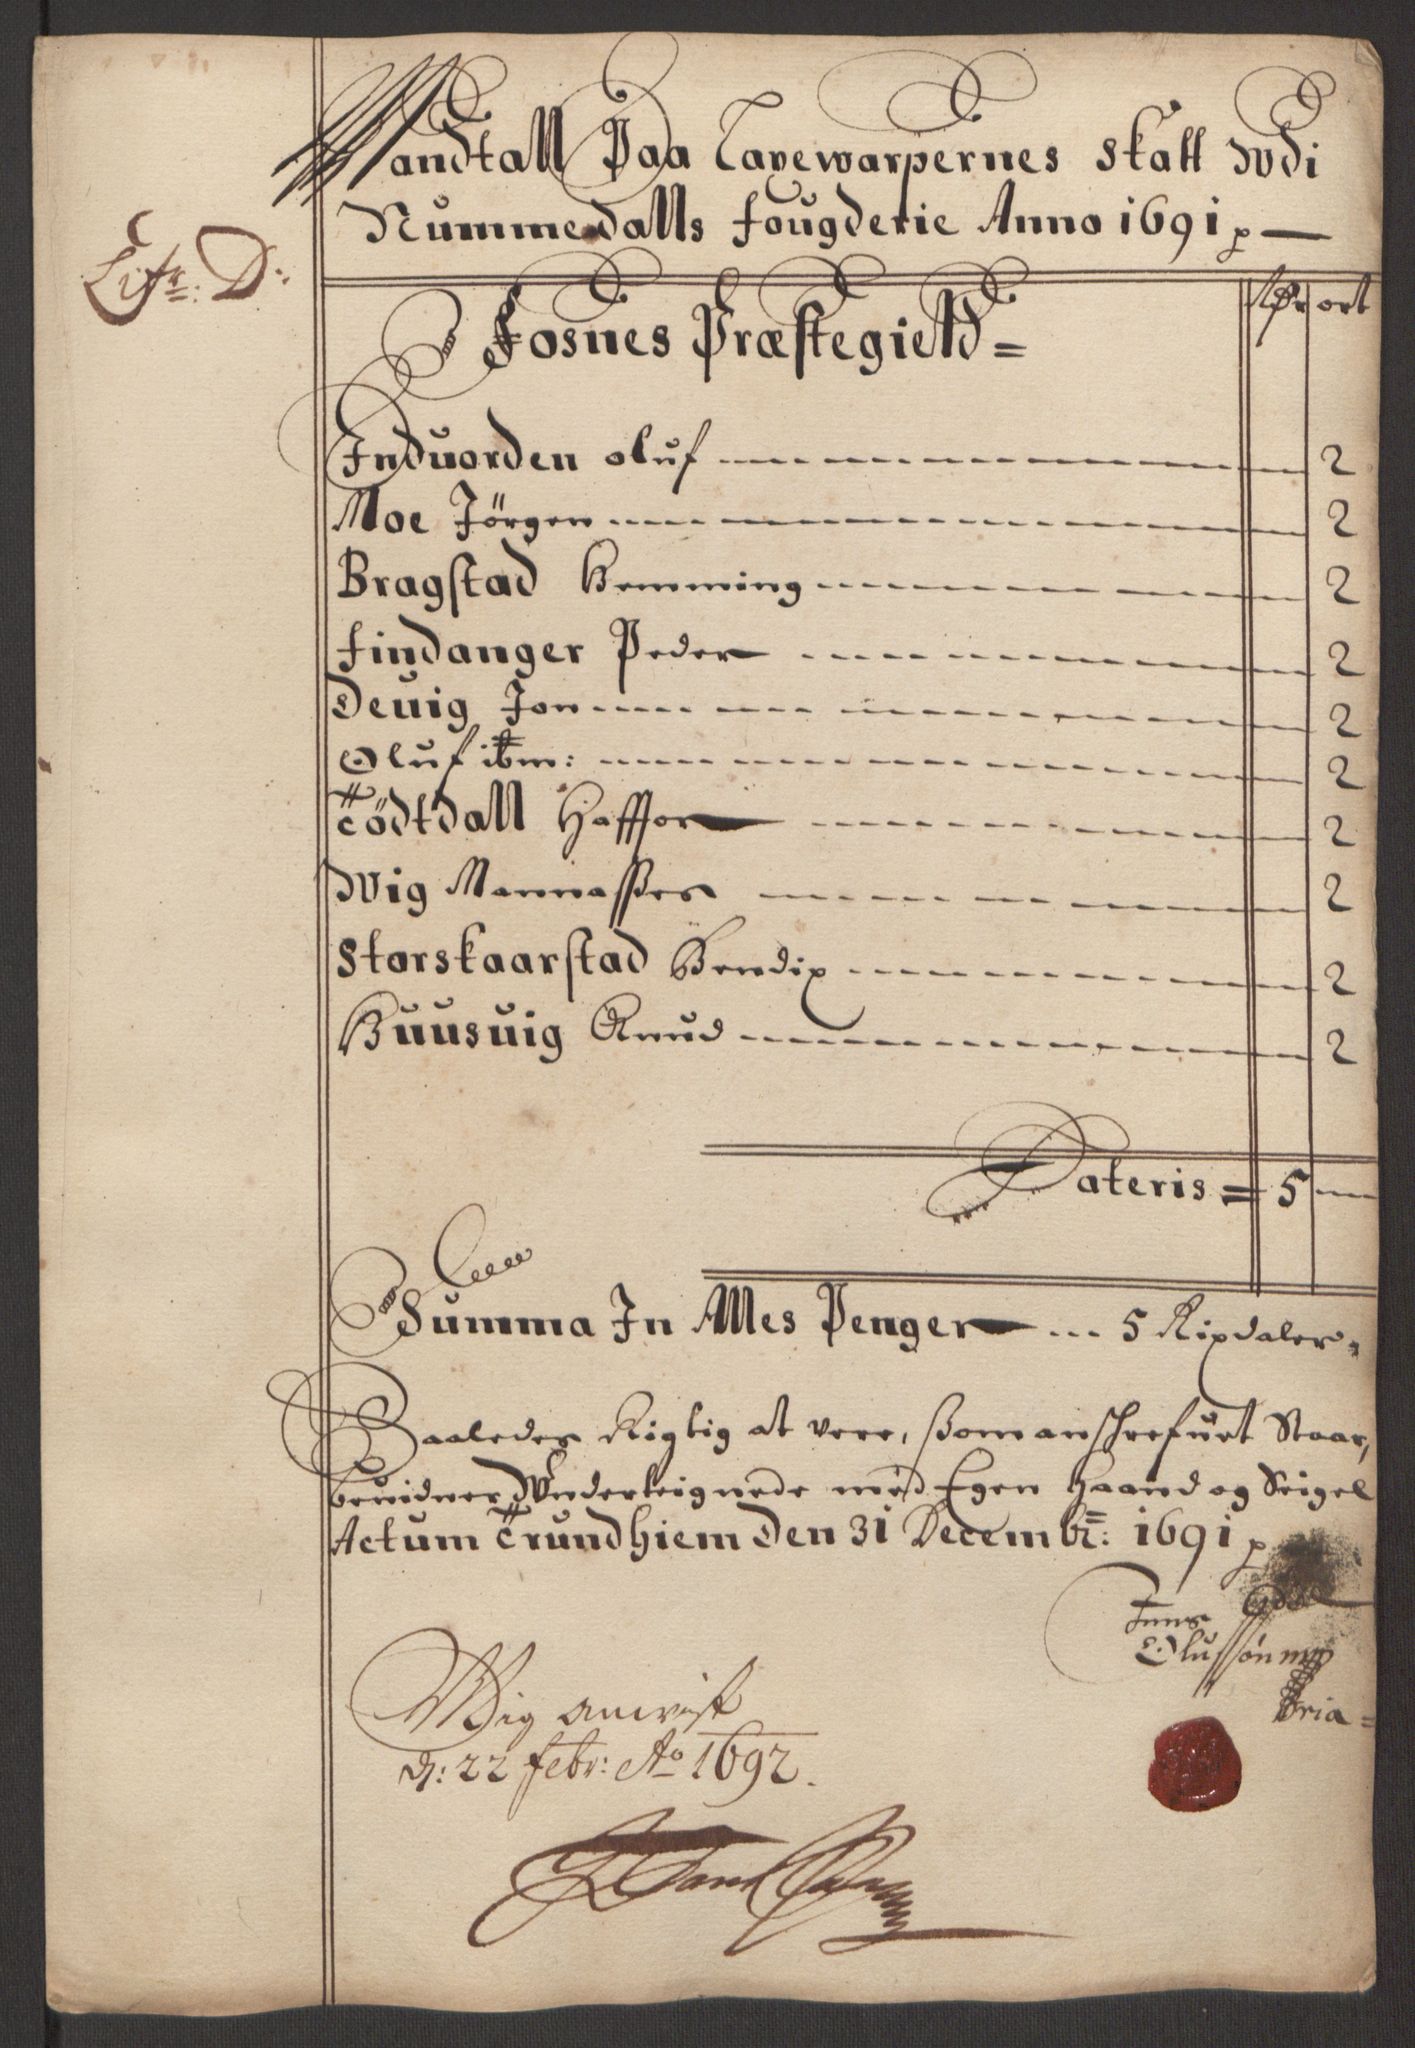 Mandtall Paa Lavewarpernes Skatt Wdi
Nummedalls fougderie Anno 1691 p
Litr: D:
Rdr ort
Fosnes Præstegield =
Induorden oluf 2
Moe Jörgen 2
Bragstad Hemming 2
Findanger Peder 2
Deuig Jon 2
Oluf ibm: 2
Tödtdall Haffor 2
Wig Mannasses 2
Storskaarstad Bendix 2
Huusuig Knud 2
Lateris = 5
Summa In Alles Penger 5 Rixdaler
Saaledes Rigtig at vere, som anschrefuet Staar,
beuidner Wnderteignede med Egen Haand og Seigel
Actum Trundhiem den 31 Decembr: 1691 p
Jens
Olussön mp
pria =
Mig anvist
d: 22 febr: Ao 1692.